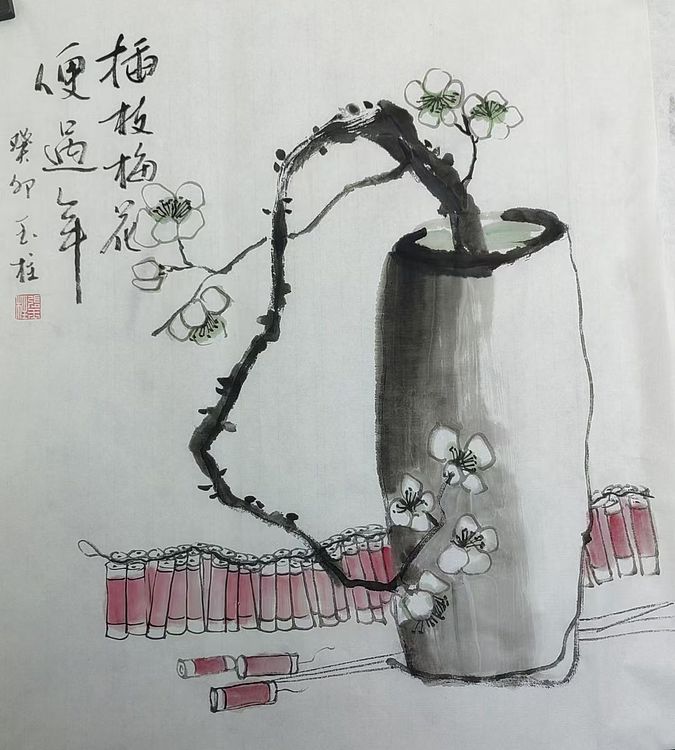 插枝梅花
便過年
癸卯 玉柱